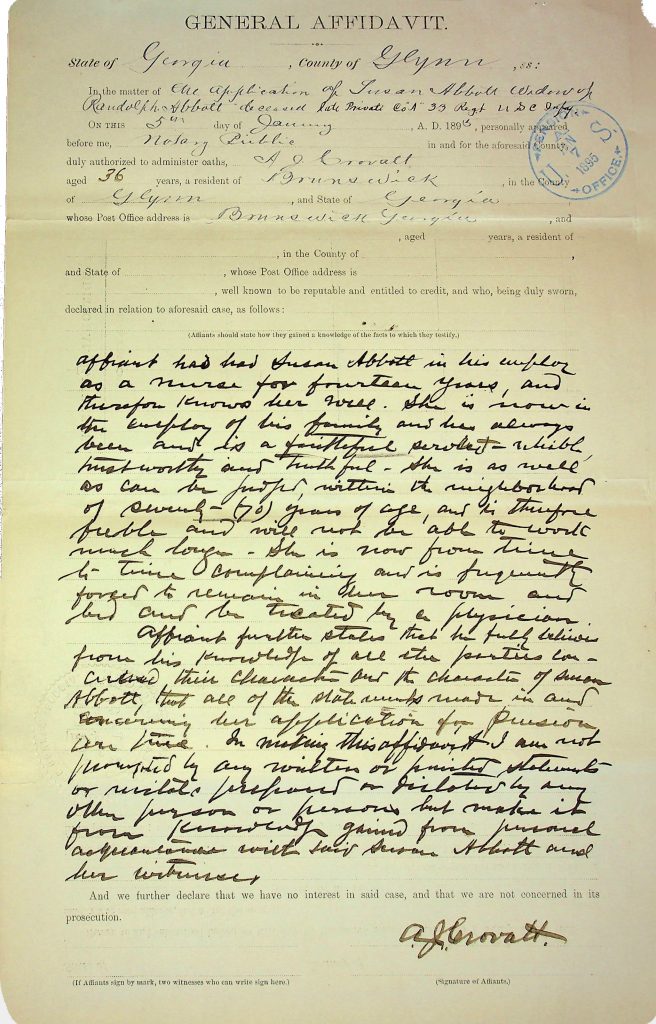 GENERAL AFFIDAVIT.
State of Georgia, County of Glynn, ss:
In the matter of the application of Susan Abbott Widow of
Randolph Abbott deceased late Private Co A 33 Regt U S C Infy.
ON THIS 5th day of January, A. D. 1895, personally appeared
before me, Notary Public in and for the aforesaid County,
duly authorized to administer oaths, A J Crovatt
aged 36 years, a resident of Brunswick, in the County
of Glynn, and State of Georgia
whose Post Office address is Brunswick Georgia, and
, aged years, a resident of
, in the County of ,
and State of , whose Post Office address is
, well known to be reputable and entitled to credit, and who, being duly sworn,
declared in relation to aforesaid case, as follows:
(Affiants should state how they gained a knowledge of the facts to which they testify.)
affiant has had Susan Abbott in his employ
as a nurse for fourteen years, and
therefore knows her well. She is now in
the employ of his family and has always
been and is a faithful servant - reliable,
trustworthy and truthful - She is as well
as can be judged, within the neighborhood
of seventy - (70) years of age, and is therefore
feeble and will not be able to work
much longer - She is now from time
to time complaining and is frequently
forced to remain in her room and
bed and be treated by a physician.
Affiant further states that he fully believes
from his knowledge of all the parties con-
cerned, their character and the character of Susan
Abbott, that all of the statements made in and
concerning her application for Pension
are true. In making this affidavit I am not
prompted by any written or printed statements
or recitals prepared or dictated by any
other person or persons but make it
from knowledge gained from personal
acquaintance with said Susan Abbott and
her witnesses,
And we further declare that we have no interest in said case, and that we are not concerned in its
prosecution.
A. J. Crovatt.
(If Affiants sign by mark, two witnesses who can write sign here.) (Signature of Affiants.)
U.S. PENSION OFFICE.
JAN 7 1895